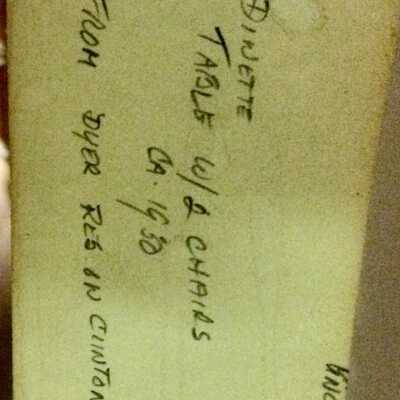 ④ DINETTE
TABLE W/2 CHAIRS
CA. 1930
FROM DYER RES. IN CLINTON